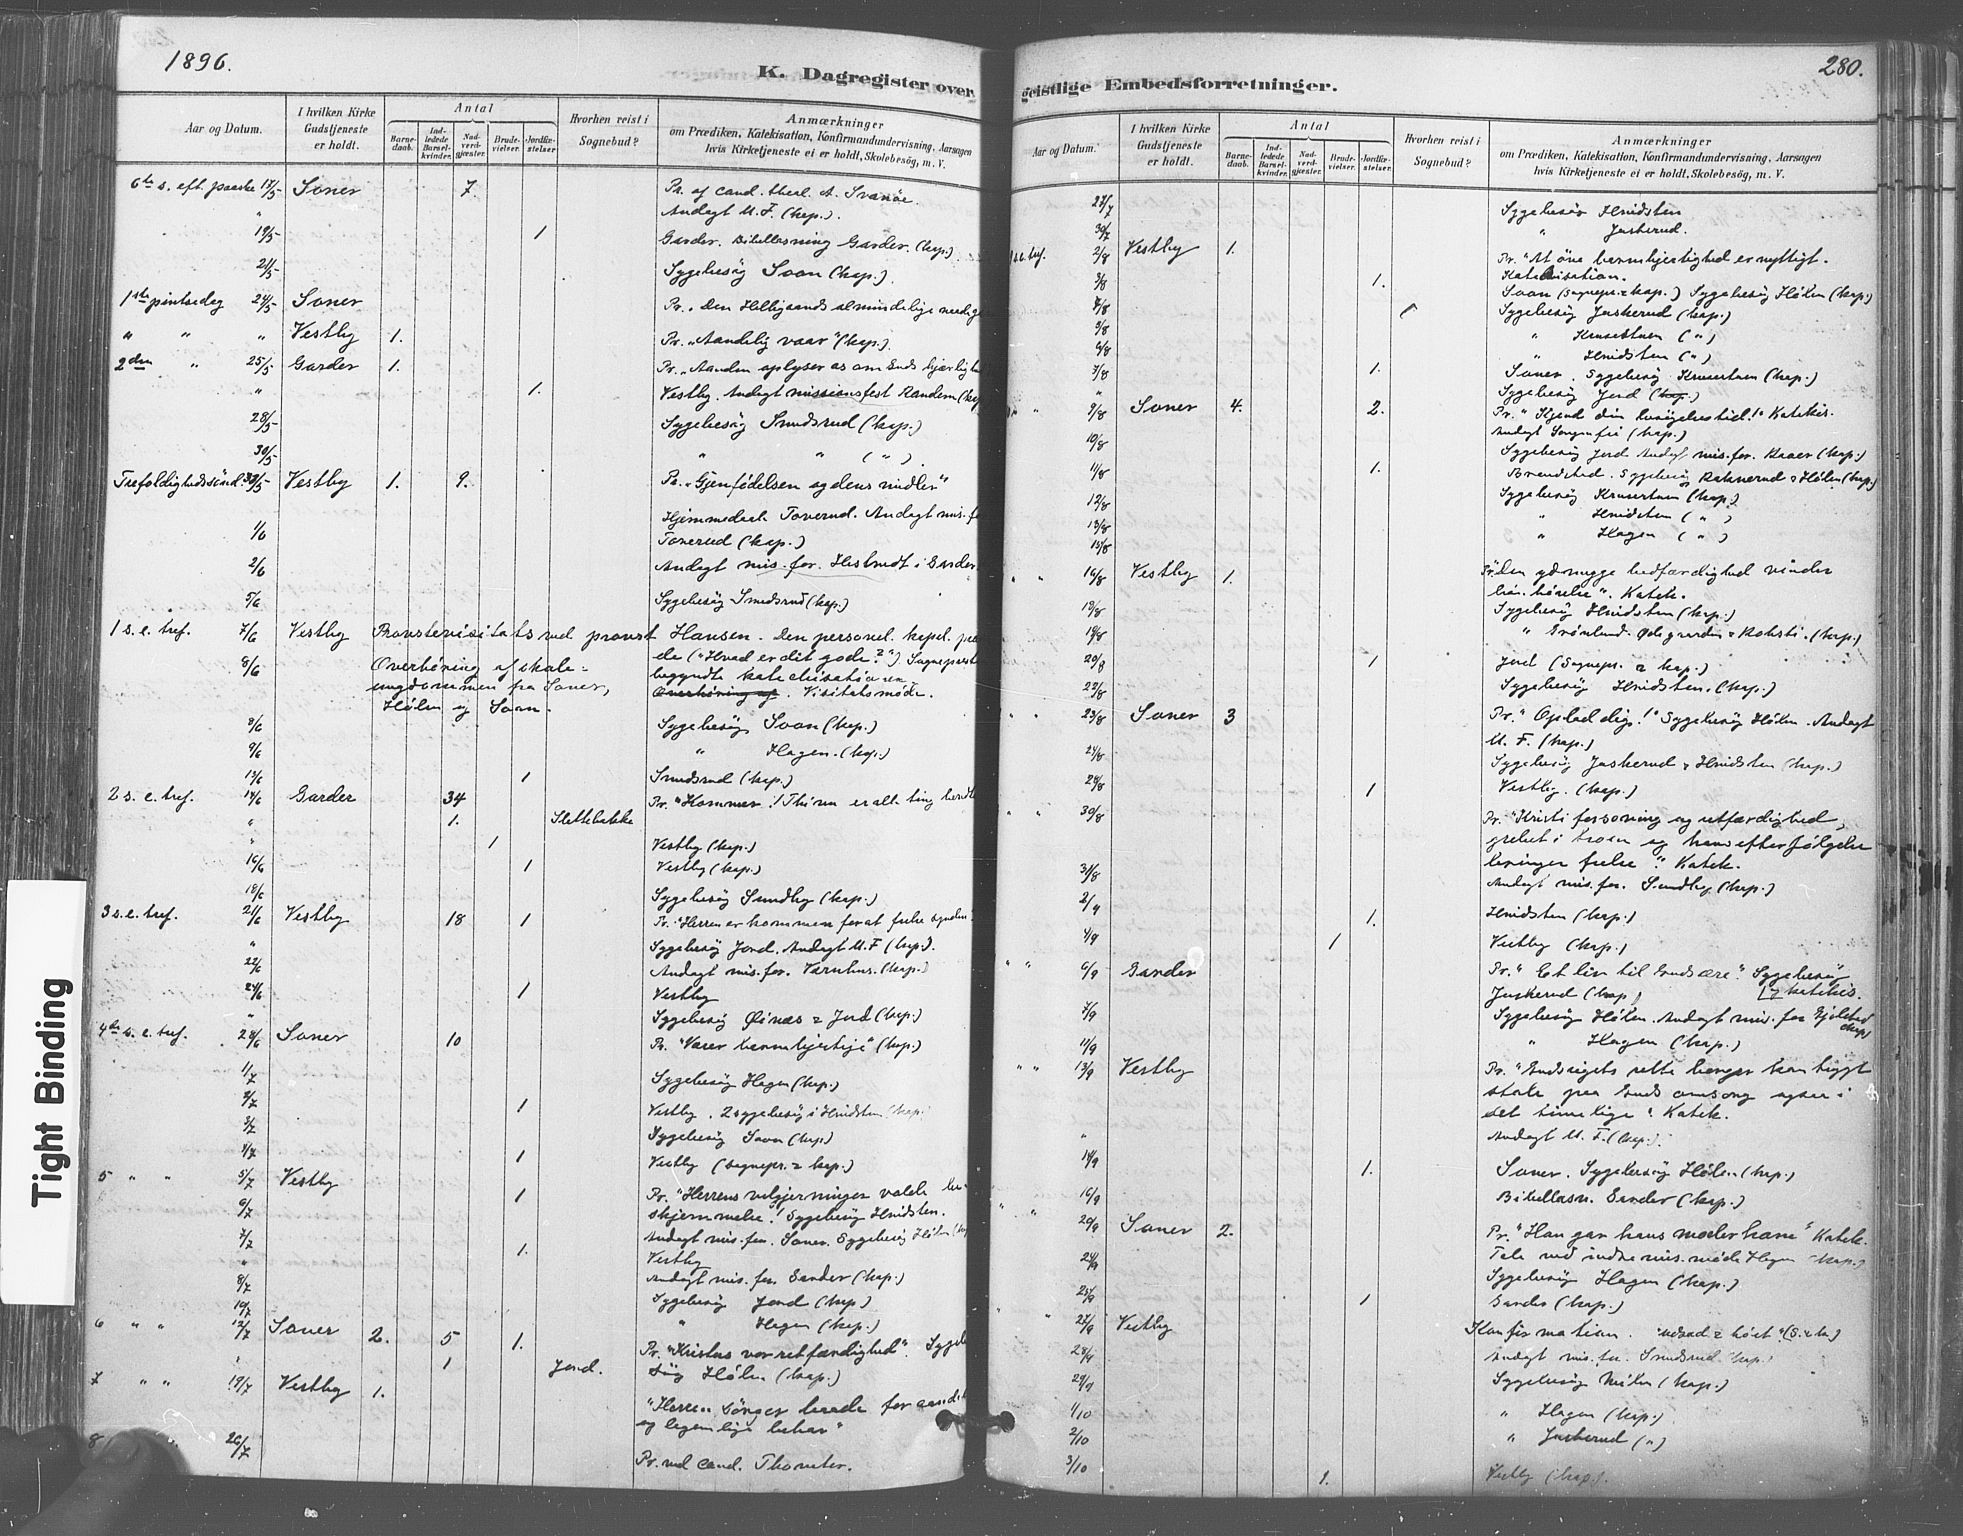 1896.
K. Dagregister over
Aar og Datum.
I hvilken Kirke Gudstjeneste er holdt.
Antal
Barnedaab.
Indledede Barselkvinder.
Nadverdgjæster.
Brudevielser.
Jordfæstelser
Hvorhen reist i Sognebud?
Anmærkninger
om Prædiken, Katekisation, Konfirmandundervisning, Aarsagen
hvis Kirketjeneste ei er holdt, Skolebesög, m. V.
6te s. eft. paaske 17/5 Soner 7. Pr. af cand. theol. A. Svanøe.
" Andagt U.F. (kap.).
19/5 1 Garder. Bibellæsning Garder. (kap.)
21/5 Sygebesøg Soon (kap.).
1ste pintsedag 24/5 Soner Pr. „Den Helligaands almindelige
" " " Vestby 1. Pr. „Aandelig vaar" (kap.).
2den " 25/5 Garder 1. Pr. „Aanden oplyser os om Guds kjærlighed
" 1. Vestby. Andagt missionsfest Randem (kap
28/5 Sygebesøg Smedsrud (kap.)
30/5 " " ( " )
Trefoldighedssönd. 31/5 Vestby 1. 9. Pr. „Gjenfødelsen og dens midler"
Hjemmedaab Toverud. Andagt mis. f
1/6 Toverud (kap.)
2/6 Andagt mis. for. i Garder.
5/6 Sygebesøg Smedsrud (kap.)
1 s. e. tref. 7/6 Vestby Provstevisitats ved provst Hansen. Den personel. kapel. præ
de („Hvad er dit gode?") Sognepræst
8/6 Overhöring af skole- begyndte katechisationen
ungdommen fra Soner, Overhöring af. Visitatsmøde.
Hølen og Soon.
8/6 Sygebesøg Soon (kap.)
9/6 " Hagen. (kap.)
13/6 1 Smedsrud (kap.)
2 s. e. tref. 14/6 Garder 34 Pr. "Kommer! Thi nu er alle ting beredt
" 1. Slettebakke
" 1 Vestby (kap.)
16/6 1 Vestby (kap.)
18/6 Sygebesøg Sundby (kap.)
3 s. e. tref. 21/6 Vestby 18 1 Pr. "Herren er kommen for at frelse syndere
" Sygebesøg Jord. Andagt U.F (kap.).
22/6 Andagt mis. for. Varnhus. (kap.)
24/6 1 Vestby
" Sygebesøg Øinæs & Jord (kap.)
4de s. e. tref. 28/6 Soner 10 Pr. "Værer barmhjertige" (kap.)
1/7 Sygebesøg Hagen (kap.)
2/7 1 Vestby. 2 sygebesøg i Hvidsten (kap.
3/7 Sygebesøg Soon (kap)
4/7 1 Vestby (sognepr. & kap.)
5 " " 5/7 Vestby Pr. "Herrens velgjerninger volde be-
6/7 1 skjemmelse! Sygebesøg Hvidsten.
7/7 Andagt mis. for. Soner. Sygebesøg Hölen (kap
" 1. Vestby
8/7 Andagt mis. for. Garder (kap.)
10/7 Sygebesøg Jord (kap)
" Hagen (kap.)
6 " " 12/7 Soner 2. 5 1. Pr. "Kristus vor retfærdighed". Sygebe
" 1 Jord. søg Hölen (kap.)
7 " " 19/7 Vestby 1. "Herren sørger baade for aandel
og legemlige behov"
8 " 26/7 Pr. ved cand. Thomter.
geistlige Embedsforretninger.
280.
Aar og Datum.
I hvilken Kirke Gudstjeneste er holdt.
Antal
Barnedaab.
Indledede Barselkvinder.
Nadverdgjæster.
Brudevielser.
Jordfæstelser
Hvorhen reist i Sognebud?
Anmærkninger
om Prædiken, Katekisation, Konfirmandundervisning, Aarsagen
hvis Kirketjeneste ei er holdt, Skolebesög, m. V.
27/7 Sygebesøg Hvidsten
30/7 " Jaskerud.
s. e. tref. 2/8 Vestby 1. Pr. "At öve barmhjertighed er nyttigt.
Katekisation.
3/8 1. Soon (sognepr. & kap.) Sygebesøg Hølen (kap.)
7/8 Sygebesøg Jaskerud (kap.)
5/8 " Krusetuen (")
6/8 " Hvidsten (")
7/8 1. Soner. Sygebesøg Krusetuen (kap.)
" Sygebesøg Jord (kap.)
" " 9/8 Soner 4. 2. Pr. "Kjend din besögelsestid!" Katekis.
Andagt Sorgenfri (kap.)
10/8 Sygebesøg Jord Andagt mis. for. Kraer (kap.)
11/8 1. Brandstad. Sygebesøg Raknerud & Hölen (kap.)
12/8 Sygebesøg Krusetuen (kap.)
13/8 " Hvidsten ( " )
15/8 " Hagen ( " )
" " 16/8 Vestby 1. Pr. "Den ydmyge bodfærdighed vinder
bön. hörelse". Katek.
Sygebesøg Hvidsten (kap.)
19/8 " Grönlund. Ødegaarden & Kolsti. (kap.)
20/8 1 Jord (Sognepr. & kap.)
22/8 Sygebesøg Hvidsten. (kap.)
" " 23/8 Soner 3 Pr. "Oplad dig!" Sygebesøg Hölen. Andagt
U. F. (kap.)
24/8 Sygebesøg Jaskerud & Hvidsten (kap.)
1 Vestby. (kap.)
" " 30/8 Pr. "Kristi forsoning og retfærdighed,
grebet i troen og hans efterfølgelse
bringer frelse". Katek.
31/8 Andagt mis. for. Sundby (kap.)
2/9 1. Hvidsten (kap.)
4/9 1 Vestby (kap.)
" " 6/9 Garder Pr. "Et liv til Guds ære". Sygebesøg
Jaskerud (kap) [& katekis.
7/9 Sygebesøg Hölen. Andagt mis. for
kap)
11/9 " Hagen (kap.)
" " 13/9 Vestby Pr. "Gudsrigets rette borger kan trygt
stole paa Guds omsorg ogsaa i
det timelige". Katek.
" Andagt U. F. (kap.).
14/9 1. Soner. Sygebesøg Hölen (kap.)
16/9 Bibellæsn. Garder (kap.)
" " 20/9 Soner 2. Pr. "Han gav hans moder ham" Katek.
Tale ved indre mis. møde Hagen (kap.)
24/9 Sygebesøg Hagen (kap.)
25/9 1 Garder (kap.)
" " 27/9 Vestby Konfirmation. (S. & k.)
28/9 Andagt mis. for. Smedsrud kap.
29/9 Sygebesøg (kap.)
1/10 " Hagen (kap.)
2/10 " Jaskerud (")
3/10 1. Vestby (kap.).
Tight Binding